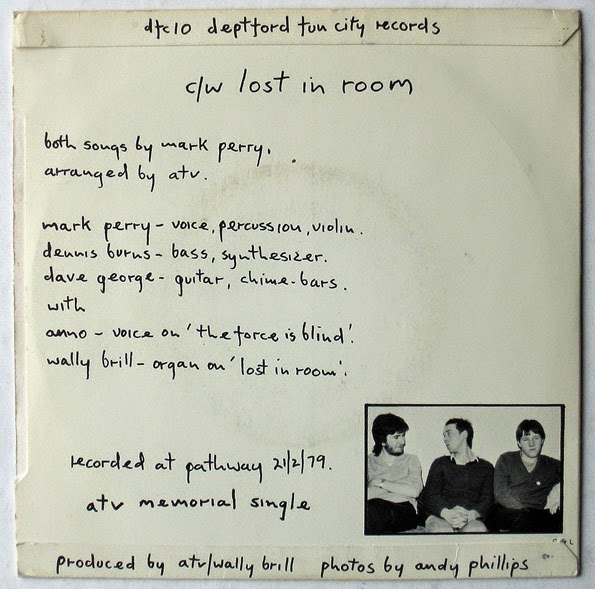 dfc10 deptford fun city records
c/w lost in room
both songs by mark perry.
arranged by atv.
mark perry - voice, percussion, violin.
dennis burns - bass, synthesizer.
dave george - guitar, chime-bars.
with
anno - voice on 'the force is blind'.
wally brill - organ on 'lost in room'.
recorded at pathway 21/2/79.
atv memorial single
produced by atv/wally brill photos by andy phillips